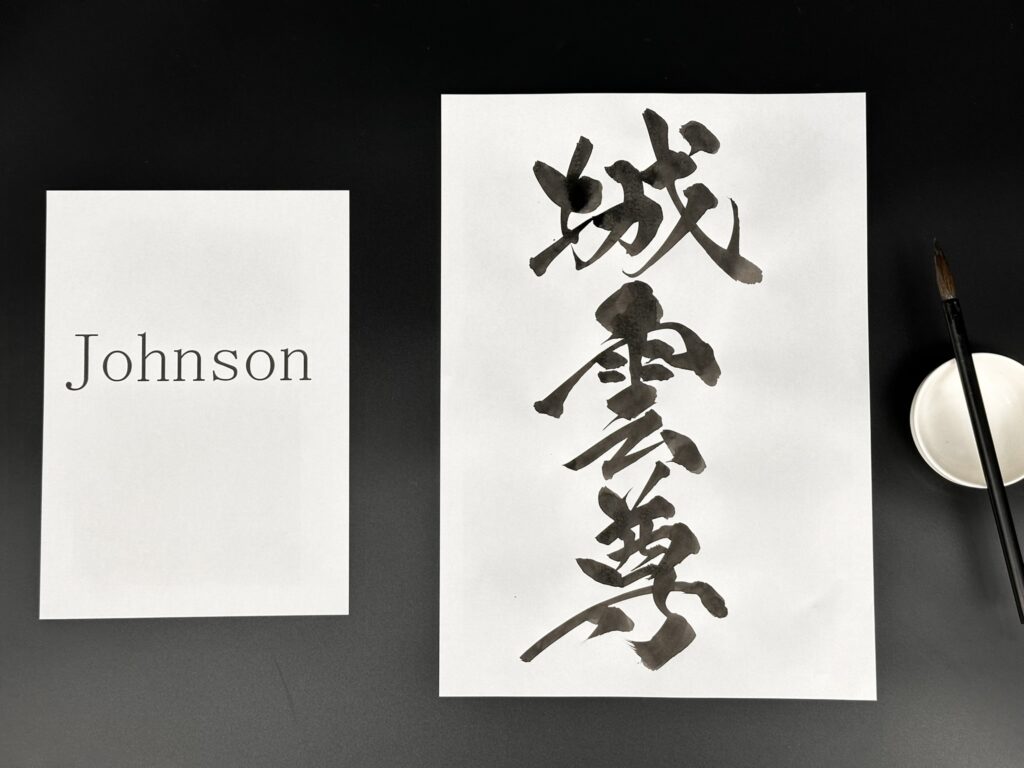 Johnson
城
雲
尊